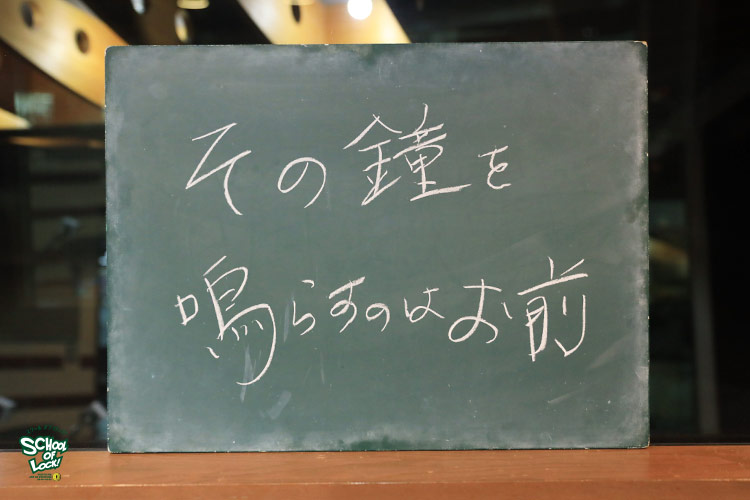 その鐘を
鳴らすのはお前
SCHOOL
OF
LOCK!